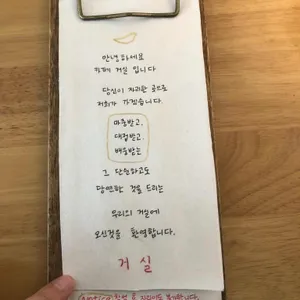 안녕하세요
카페 거실 입니다
당신이 자리한 곳으로
저희가 가겠습니다.
마중받고,
대접받고,
배웅받는
그 단순하고도
당연한 것을 드리는
우리의 거실에
오신것을 환영합니다.
거 실